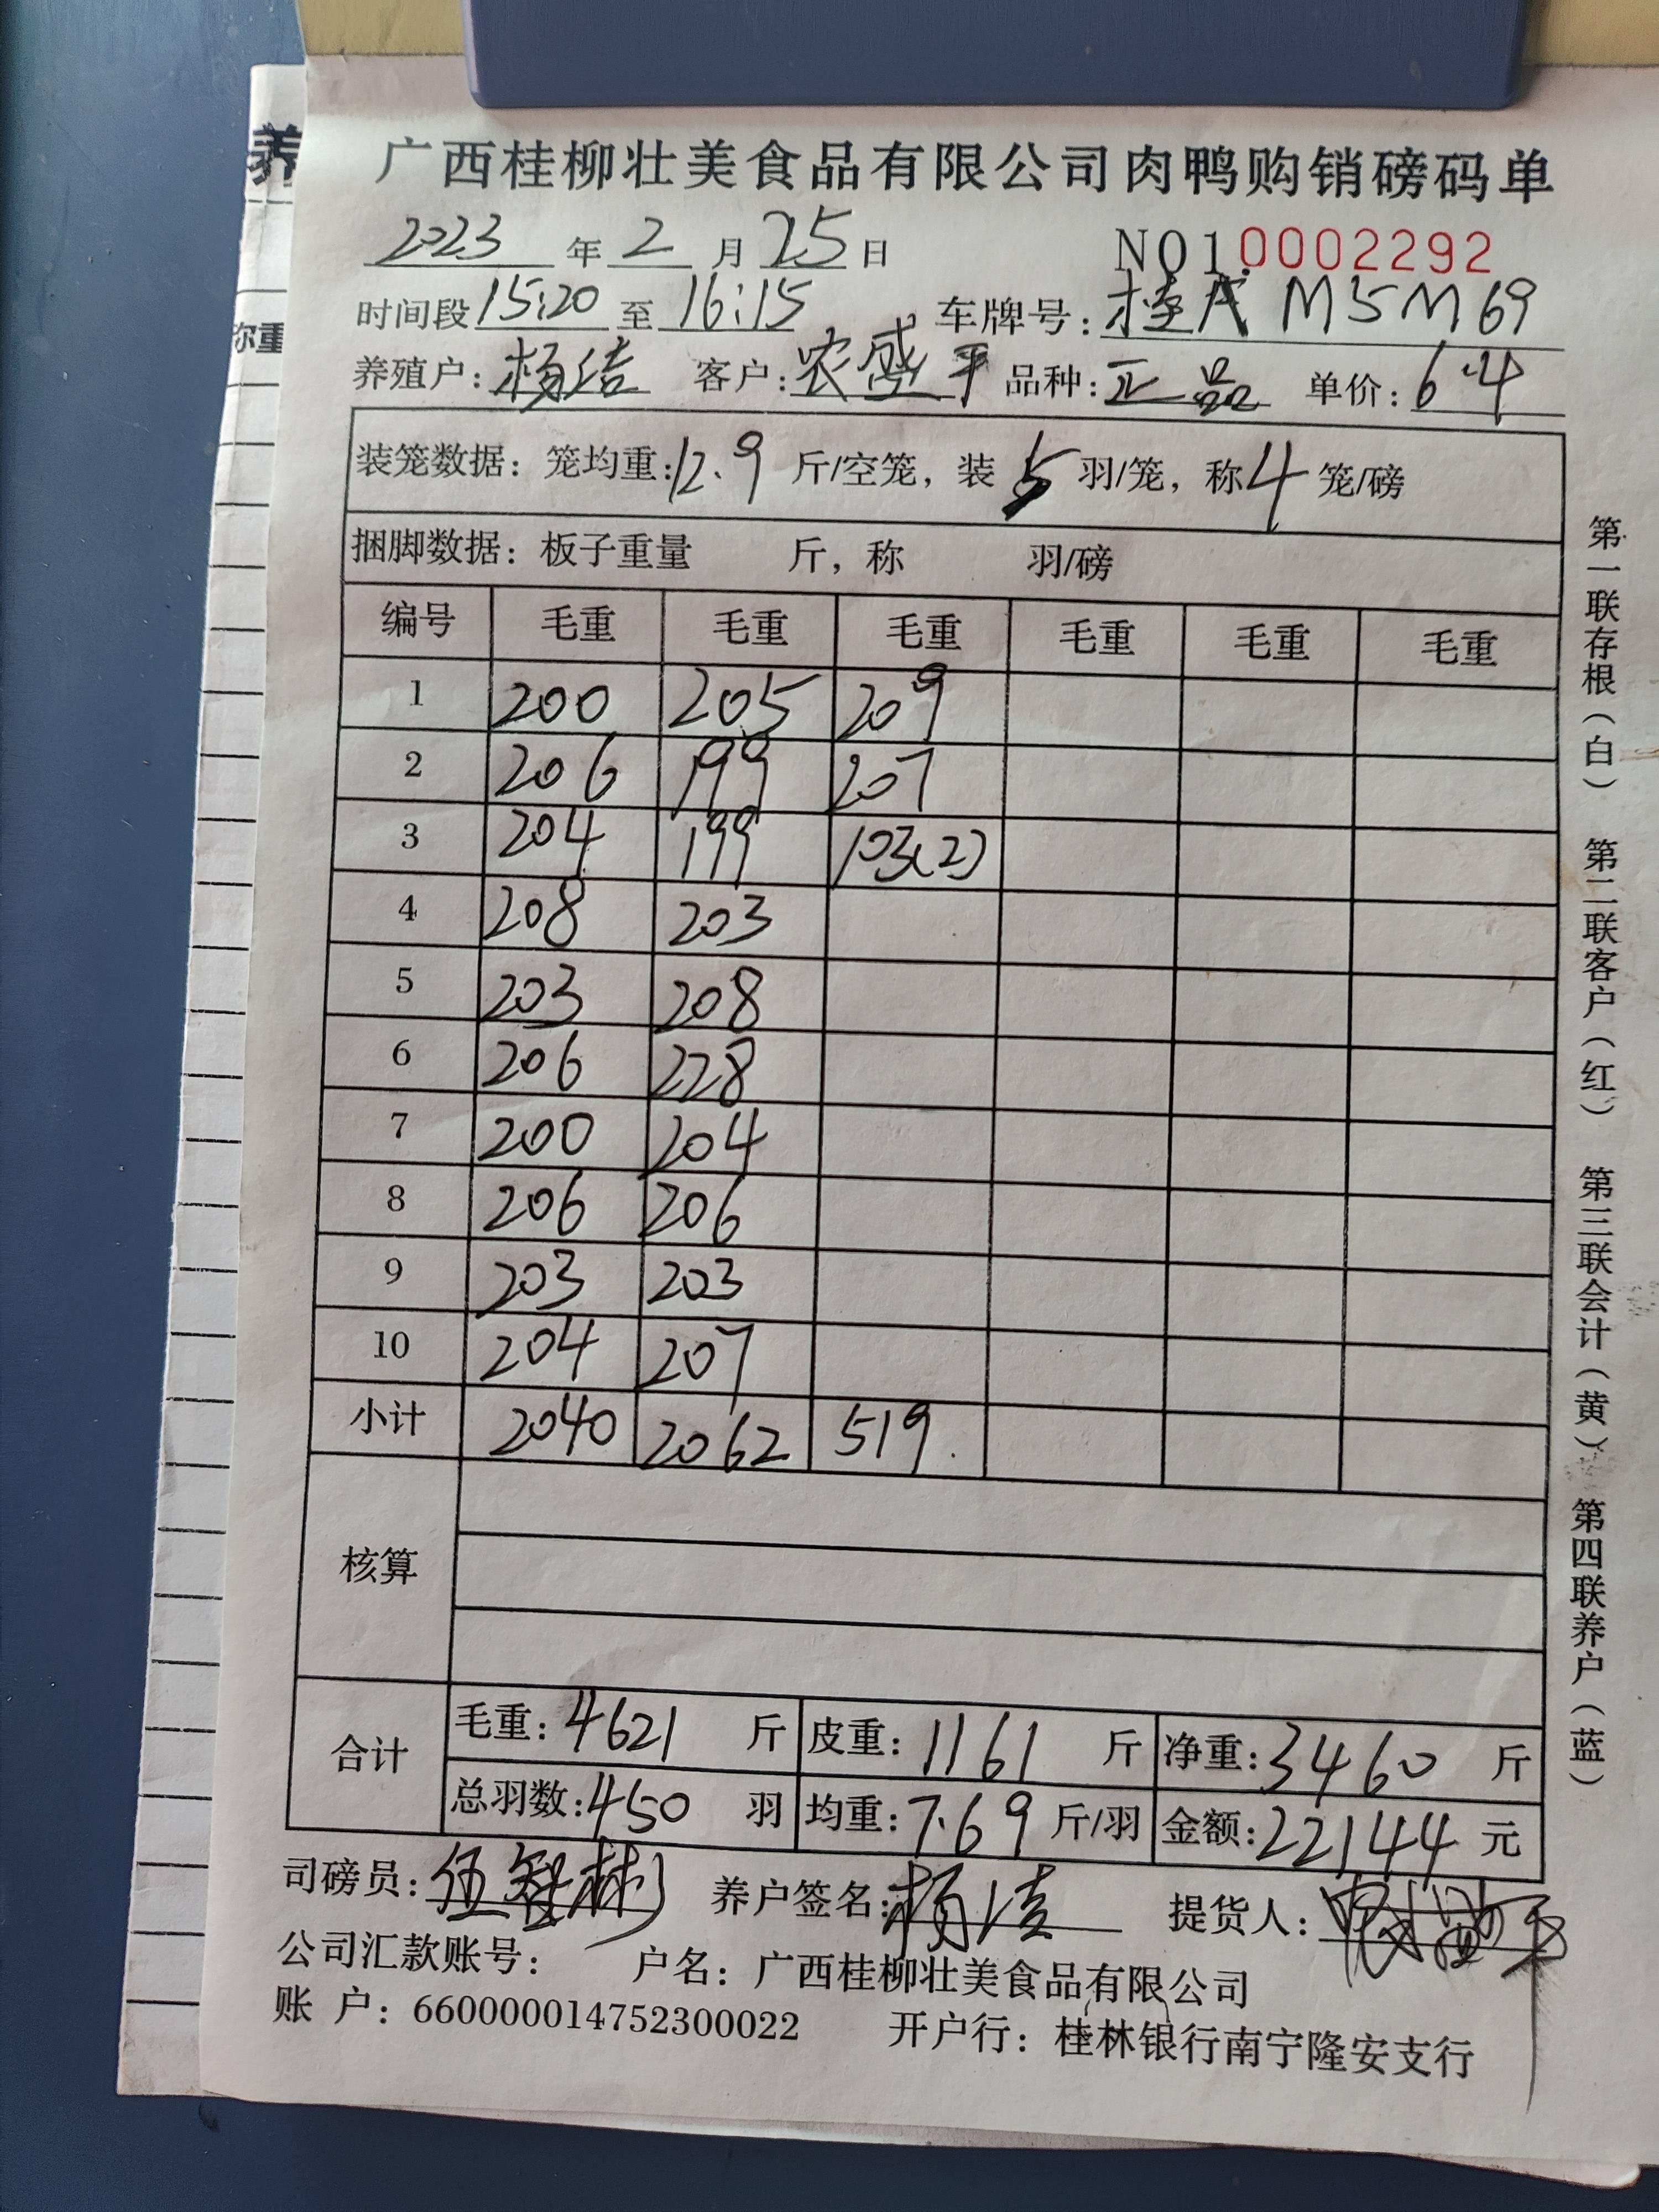 养
称重
广西桂柳壮美食品有限公司肉鸭购销磅码单
2023 年 2 月 25 日 NO1.0002292
时间段 15:20 至 16:15 车牌号: 桂A M5M69
养殖户: 杨洁 客户: 农盛平 品种: 正品 单价: 6.4
装笼数据: 笼均重: 12.9 斤/空笼, 装 5 羽/笼, 称 4 笼/磅
捆脚数据: 板子重量 斤, 称 羽/磅
编号 毛重 毛重 毛重 毛重 毛重 毛重
1 200 205 209
2 206 199 207
3 204 199 103(2)
4 208 203
5 203 208
6 206 228
7 200 204
8 206 206
9 203 203
10 204 207
小计 2040 2062 519
核算
合计 毛重: 4621 斤 皮重: 1161 斤 净重: 3460 斤
总羽数: 450 羽 均重: 7.69 斤/羽 金额: 22144 元
司磅员: 伍智彬 养户签名: 杨洁 提货人: 农盛平
公司汇款账号: 户名: 广西桂柳壮美食品有限公司
账 户: 660000014752300022 开户行: 桂林银行南宁隆安支行
第一联存根(白) 第二联客户(红) 第三联会计(黄) 第四联养户(蓝)